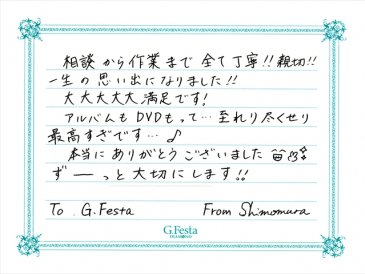 相談から作業まで全て丁寧!!親切!!
一生の思い出になりました!!
大大大大大満足です!
アルバムもDVDもって…至れり尽くせり
最高すぎです…♪
本当にありがとうございました
ずーーっと大切にします!!
To G.Festa From Shimomura
G.Festa
DIAMOND